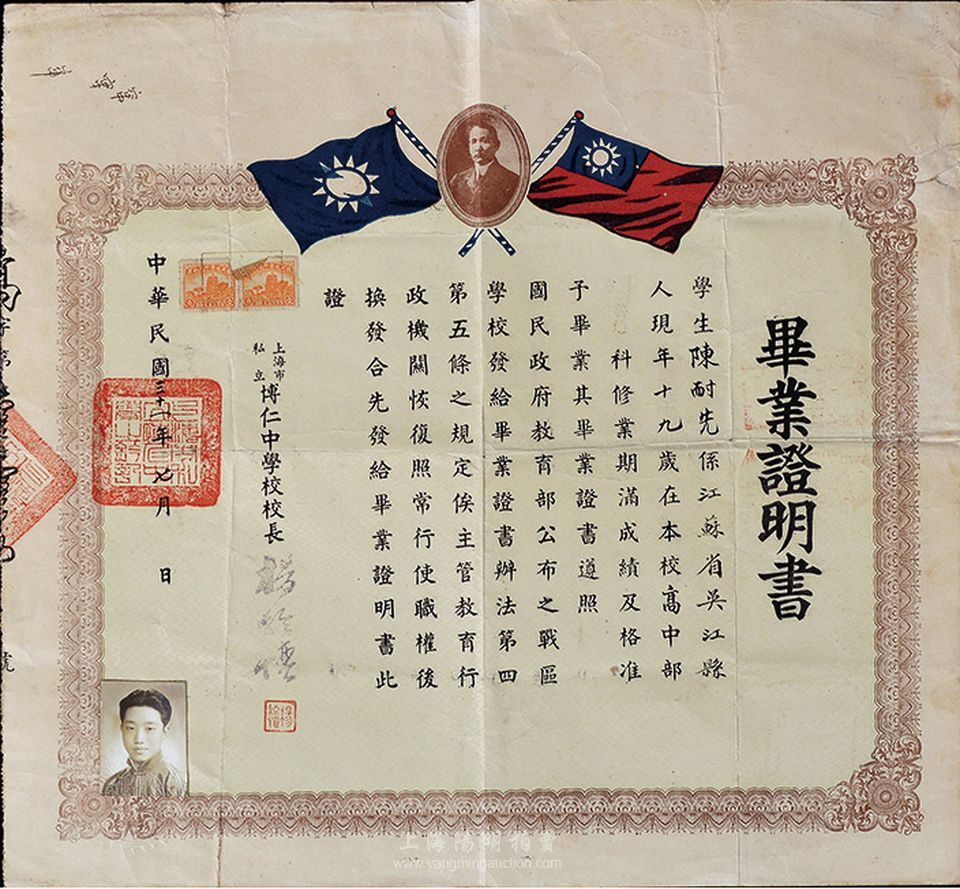 畢業證明書
學生陳耐先係江蘇省吳江縣
人現年十九歲在本校高中部
科修業期滿成績及格准
予畢業其畢業證書遵照
國民政府教育部公布之戰區
學校發給畢業證書辦法第四
第五條之規定俟主管教育行
政機關恢復照常行使職權後
換發合先發給畢業證明書此
證
上海市
私立
博仁中學校校長
中華民國三十一年七月 日
字第
號
上海陽明拍賣
www.yangmingauction.com